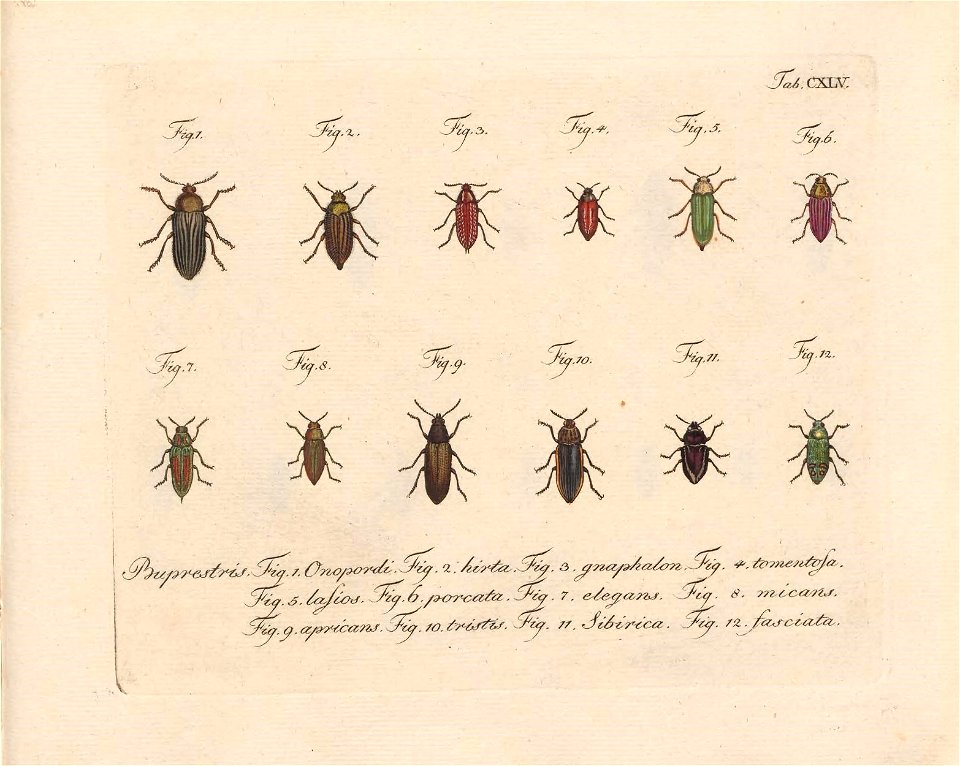 Tab. CXLV.
Fig.1. Fig.2. Fig.3. Fig.4. Fig.5. Fig.6.
Fig.7. Fig.8. Fig.9. Fig.10. Fig.11. Fig.12.
Buprestris. Fig. 1. Onopordi. Fig. 2. hirta. Fig. 3. gnaphalon. Fig. 4. tomentoſa.
Fig. 5. laſios. Fig. 6. porcata. Fig. 7. elegans. Fig. 8. micans.
Fig. 9. apricans. Fig. 10. tristis. Fig. 11. Sibirica. Fig. 12. faſciata.